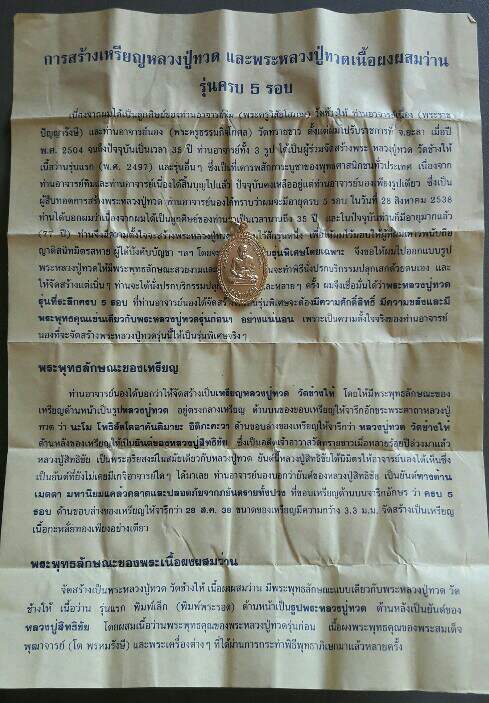 การสร้างเหรียญหลวงปู่ทวด และพระหลวงปู่ทวดเนื้อผงผสมว่าน
รุ่นครบ 5 รอบ
เนื่องจากผมได้เป็นลูกศิษย์ของท่านอาจารย์ทิม (พระครูวิสัยโสภณ) วัดช้างให้ ท่านอาจารย์เนื่อง (พระราช
ปัญญารังษี) และท่านอาจารย์นอง (พระครูธรรมกิจโกศล) วัดทรายขาว ตั้งแต่ผมไปรับราชการที่ จ.ยะลา เมื่อปี
พ.ศ. 2504 จนถึงปัจจุบันเป็นเวลา 35 ปี ท่านอาจารย์ทั้ง 3 รูปได้เป็นผู้ร่วมจัดสร้างพระ หลวงปู่ทวด วัดช้างให้
เนื้อว่านรุ่นแรก (พ.ศ. 2497) และรุ่นอื่นๆ ซึ่งเป็นที่เคารพสักการะบูชาของพุทธศาสนิกชนทั่วประเทศ เนื่องจาก
ท่านอาจารย์ทิมและท่านอาจารย์เนื่องได้สิ้นบุญไปแล้ว ปัจจุบันคงเหลืออยู่แต่ท่านอาจารย์นองเพียงรูปเดียว ซึ่งเป็น
ผู้สืบทอดการสร้างพระหลวงปู่ทวด ท่านอาจารย์นองได้ทราบว่าผมจะมีอายุครบ 5 รอบ ในวันที่ 28 สิงหาคม 2538
ท่านได้บอกผมว่าเนื่องจากผมได้เป็นลูกศิษย์ของท่านเป็นเวลานานถึง 35 ปี และในปัจจุบันท่านก็มีอายุมากแล้ว
(77 ปี) ท่านจึงมีความตั้งใจจะสร้างพระหลวงปู่ทวด เพื่อให้ผมไว้มอบให้ผู้ที่ผมเคารพนับถือ
ญาติสนิทมิตรสหาย ผู้ใต้บังคับบัญชา ฯลฯ รุ่นพิเศษโดยเฉพาะ จึงขอให้ผมไปออกแบบรูป
พระหลวงปู่ทวดให้มีพระพุทธลักษณะสวยงามและ จะทำพิธีนั่งปรกบริกรรมปลุกเสกด้วยตนเอง และ
ให้จัดสร้างแต่เนิ่นๆ ท่านจะได้นั่งปรกบริกรรม หลายๆ ครั้ง ผมจึงเชื่อมั่นได้ว่าพระหลวงปู่ทวด
รุ่นที่ระลึกครบ 5 รอบ ที่ท่านอาจารย์นองได้จัดสร้าง รุ่นพิเศษจะต้องมีความศักดิ์สิทธิ์ มีความขลังและมี
พระพุทธคุณเช่นเดียวกับพระหลวงปู่ทวดรุ่นก่อนๆ อย่างแน่นอน เพราะเป็นความตั้งใจจริงของท่านอาจารย์
นองที่จะจัดสร้างพระหลวงปู่ทวดรุ่นนี้ให้เป็นรุ่นพิเศษจริงๆ
พระพุทธลักษณะของเหรียญ
ท่านอาจารย์นองได้บอกว่าให้จัดสร้างเป็นเหรียญหลวงปู่ทวด วัดช้างให้ โดยให้มีพระพุทธลักษณะของ
เหรียญด้านหน้าเป็นรูปหลวงปู่ทวด อยู่ตรงกลางเหรียญ ด้านบนของขอบเหรียญให้จารึกอักขระพระคาถาหลวงปู่
ทวด ว่า นะโม โพธิสัตโตอาคันติมายะ อิติภะคะวา ด้านขอบล่างของเหรียญให้จารึกว่า หลวงปู่ทวด วัดช้างให้
ด้านหลังของเหรียญให้เป็นยันต์ของหลวงปู่สิทธิชัย ซึ่งเป็นอดีตเจ้าอาวาสวัดทรายขาวเมื่อหลายร้อยปีล่วงมาแล้ว
หลวงปู่สิทธิชัย เป็นพระอริยสงฆ์ในสมัยเดียวกับหลวงปู่ทวด ยันต์นี้หลวงปู่สิทธิชัยได้นิมิตรให้อาจารย์นองได้เห็นซึ่ง
เป็นยันต์ที่ยังไม่เคยมีเกจิอาจารย์ใดๆ ได้มาเลย ท่านอาจารย์นองบอกว่ายันต์ของหลวงปู่สิทธิชัย เป็นยันต์ทางด้าน
เมตตา มหานิยมแคล้วคลาดและปลอดภัยจากภยันตรายทั้งปวง ที่ขอบเหรียญด้านบนจารึกอักษร ว่า ครบ 5
รอบ ด้านขอบล่างของเหรียญให้จารึกว่า 28 ส.ค. 38 ขนาดของเหรียญมีความกว้าง 3.3 ม.ม. จัดสร้างเป็นเหรียญ
เนื้อกะหลั่ยทองเพียงอย่างเดียว
พระพุทธลักษณะของพระเนื้อผงผสมว่าน
จัดสร้างเป็นพระหลวงปู่ทวด วัดช้างให้ เนื้อผงผสมว่าน มีพระพุทธลักษณะแบบเดียวกับพระหลวงปู่ทวด วัด
ช้างให้ เนื้อว่าน รุ่นแรก พิมพ์เล็ก (พิมพ์พระรอด) ด้านหน้าเป็นรูปพระหลวงปู่ทวด ด้านหลังเป็นยันต์ของ
หลวงปู่สิทธิชัย โดยผสมเนื้อว่านพระพุทธคุณของพระหลวงปู่ทวดรุ่นก่อน เนื้อผงพระพุทธคุณของพระสมเด็จ
พุฒาจารย์ (โต พรหมรังษี) และพระเครื่องต่างๆ ที่ได้ผ่านการกระทำพิธีพุทธาภิเษกมาแล้วหลายครั้ง